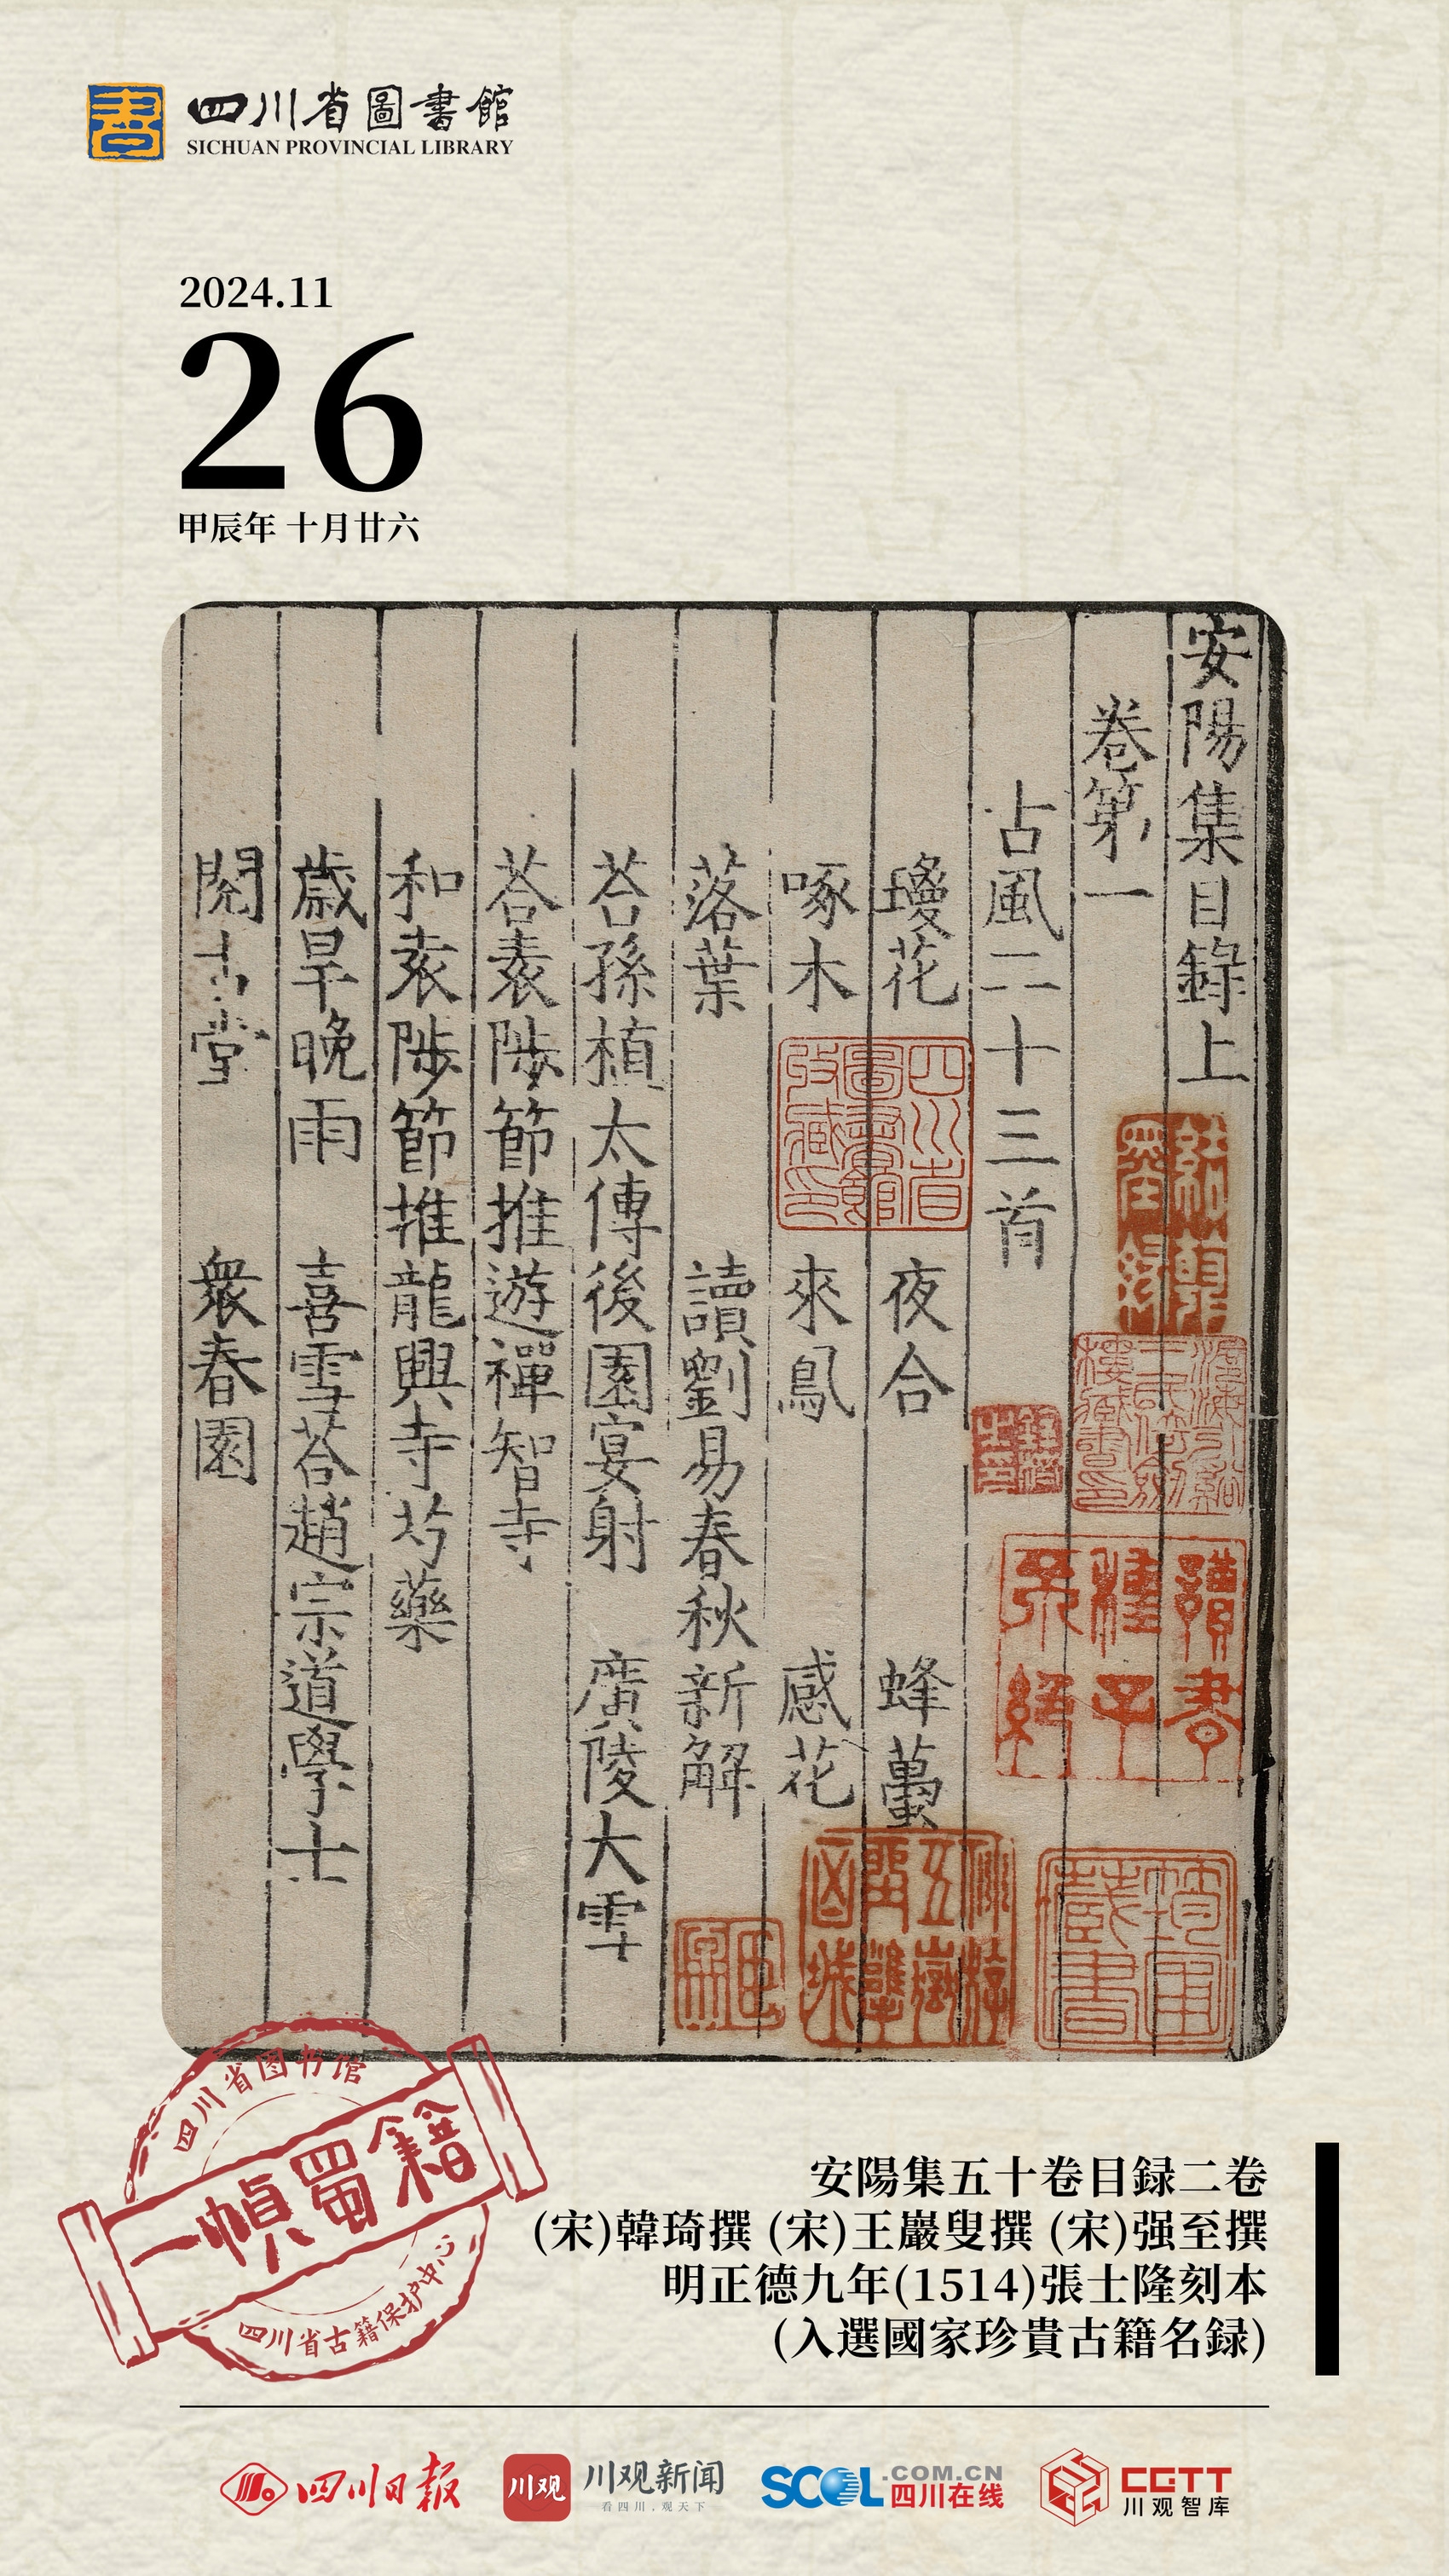 書
四川省圖書館
SICHUAN PROVINCIAL LIBRARY
2024.11
26
甲辰年 十月廿六
安陽集目錄上
卷第一
古風二十三首
瓊花 夜合 蜂蠆
啄木 來鳳 感花
落葉 讀劉易春秋新解
荅孫植太傅後園宴射 廣陵大雪
荅袁陟節推遊禪智寺
和袁陟節推龍興寺芍藥
歲旱晚雨 喜雪荅趙宗道學士
閱古堂 衆春園
四川省
圖書館
收藏印
藏書
四川省图书馆
一幀蜀籍
四川省古籍保护中心
安陽集五十卷目録二卷
(宋)韓琦撰 (宋)王巖叟撰 (宋)强至撰
明正德九年(1514)張士隆刻本
(入選國家珍貴古籍名録)
四川日报
川观
川观新闻
看四川，观天下
SCOL.COM.CN
四川在线
CGTT
川观智库